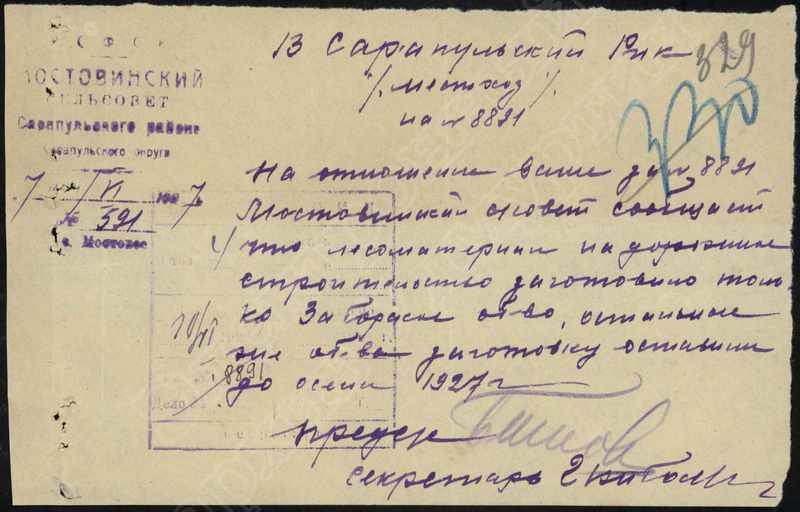 Р С Ф С Р
МОСТОВИНСКИЙ
СЕЛЬСОВЕТ
Сарапульского района
Сарапульского округа
7/VI 1927
№ 591
с. Мостовое
В Сарапульский Рик
329
/. местход /.
на № 8891
На отношение Ваше за № 8891
Мостовинский с/совет сообщает
что лесоматериал на дорожное
строительство заготовило толь-
ко Заборское об-во, остальные
же об-ва заготовку оставили
до осени 1927 г
10/VI
№ 8891
Дело
предсе
Секретарь